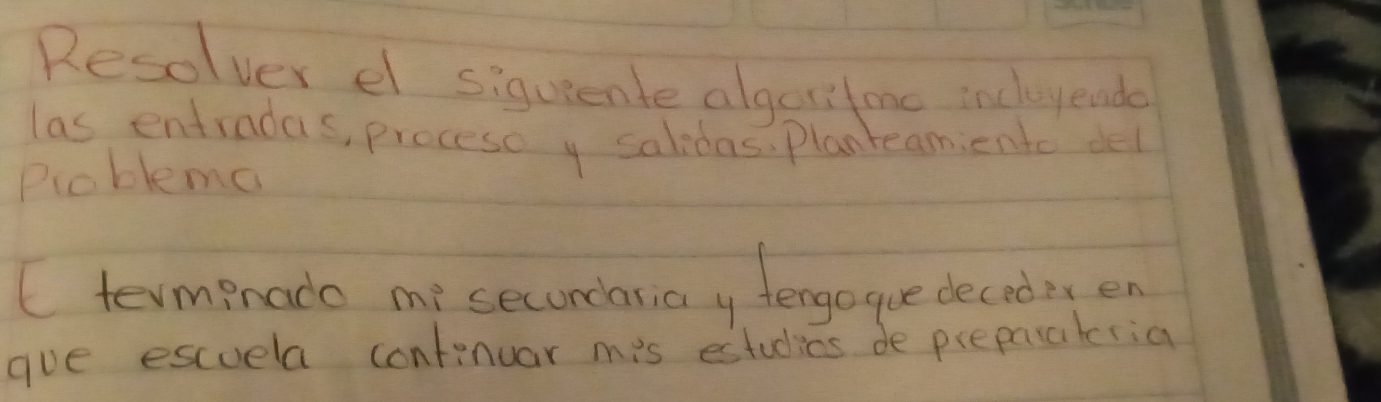 Resolver el siguiente algoritmo incluyendo
las entradas, proceso y salidas. Planteamiento del
Problema
E terminado mi secundaria y tengo que deceder en
que escuela continuar mis estudios de preparatoria